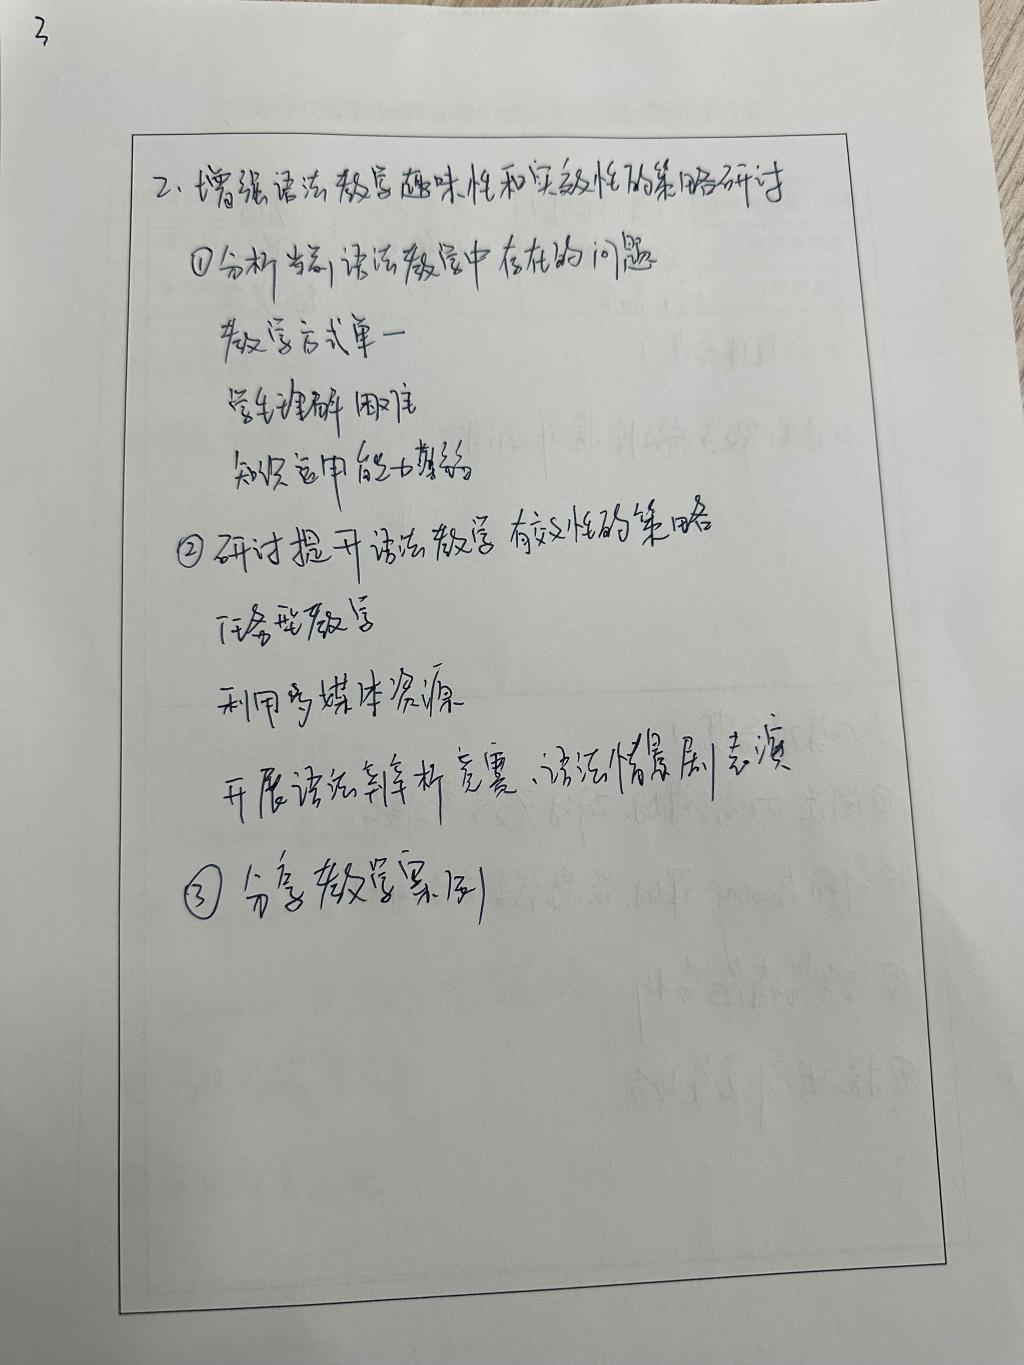 3
2. 增强语法教学趣味性和实效性的策略研讨
①分析当前语法教学中存在的问题
教学方式单一
学生理解困难
知识运用能力薄弱
②研讨提升语法教学有效性的策略
任务型教学
利用多媒体资源
开展语法辨析竞赛、语法情景剧表演
③分享教学案例